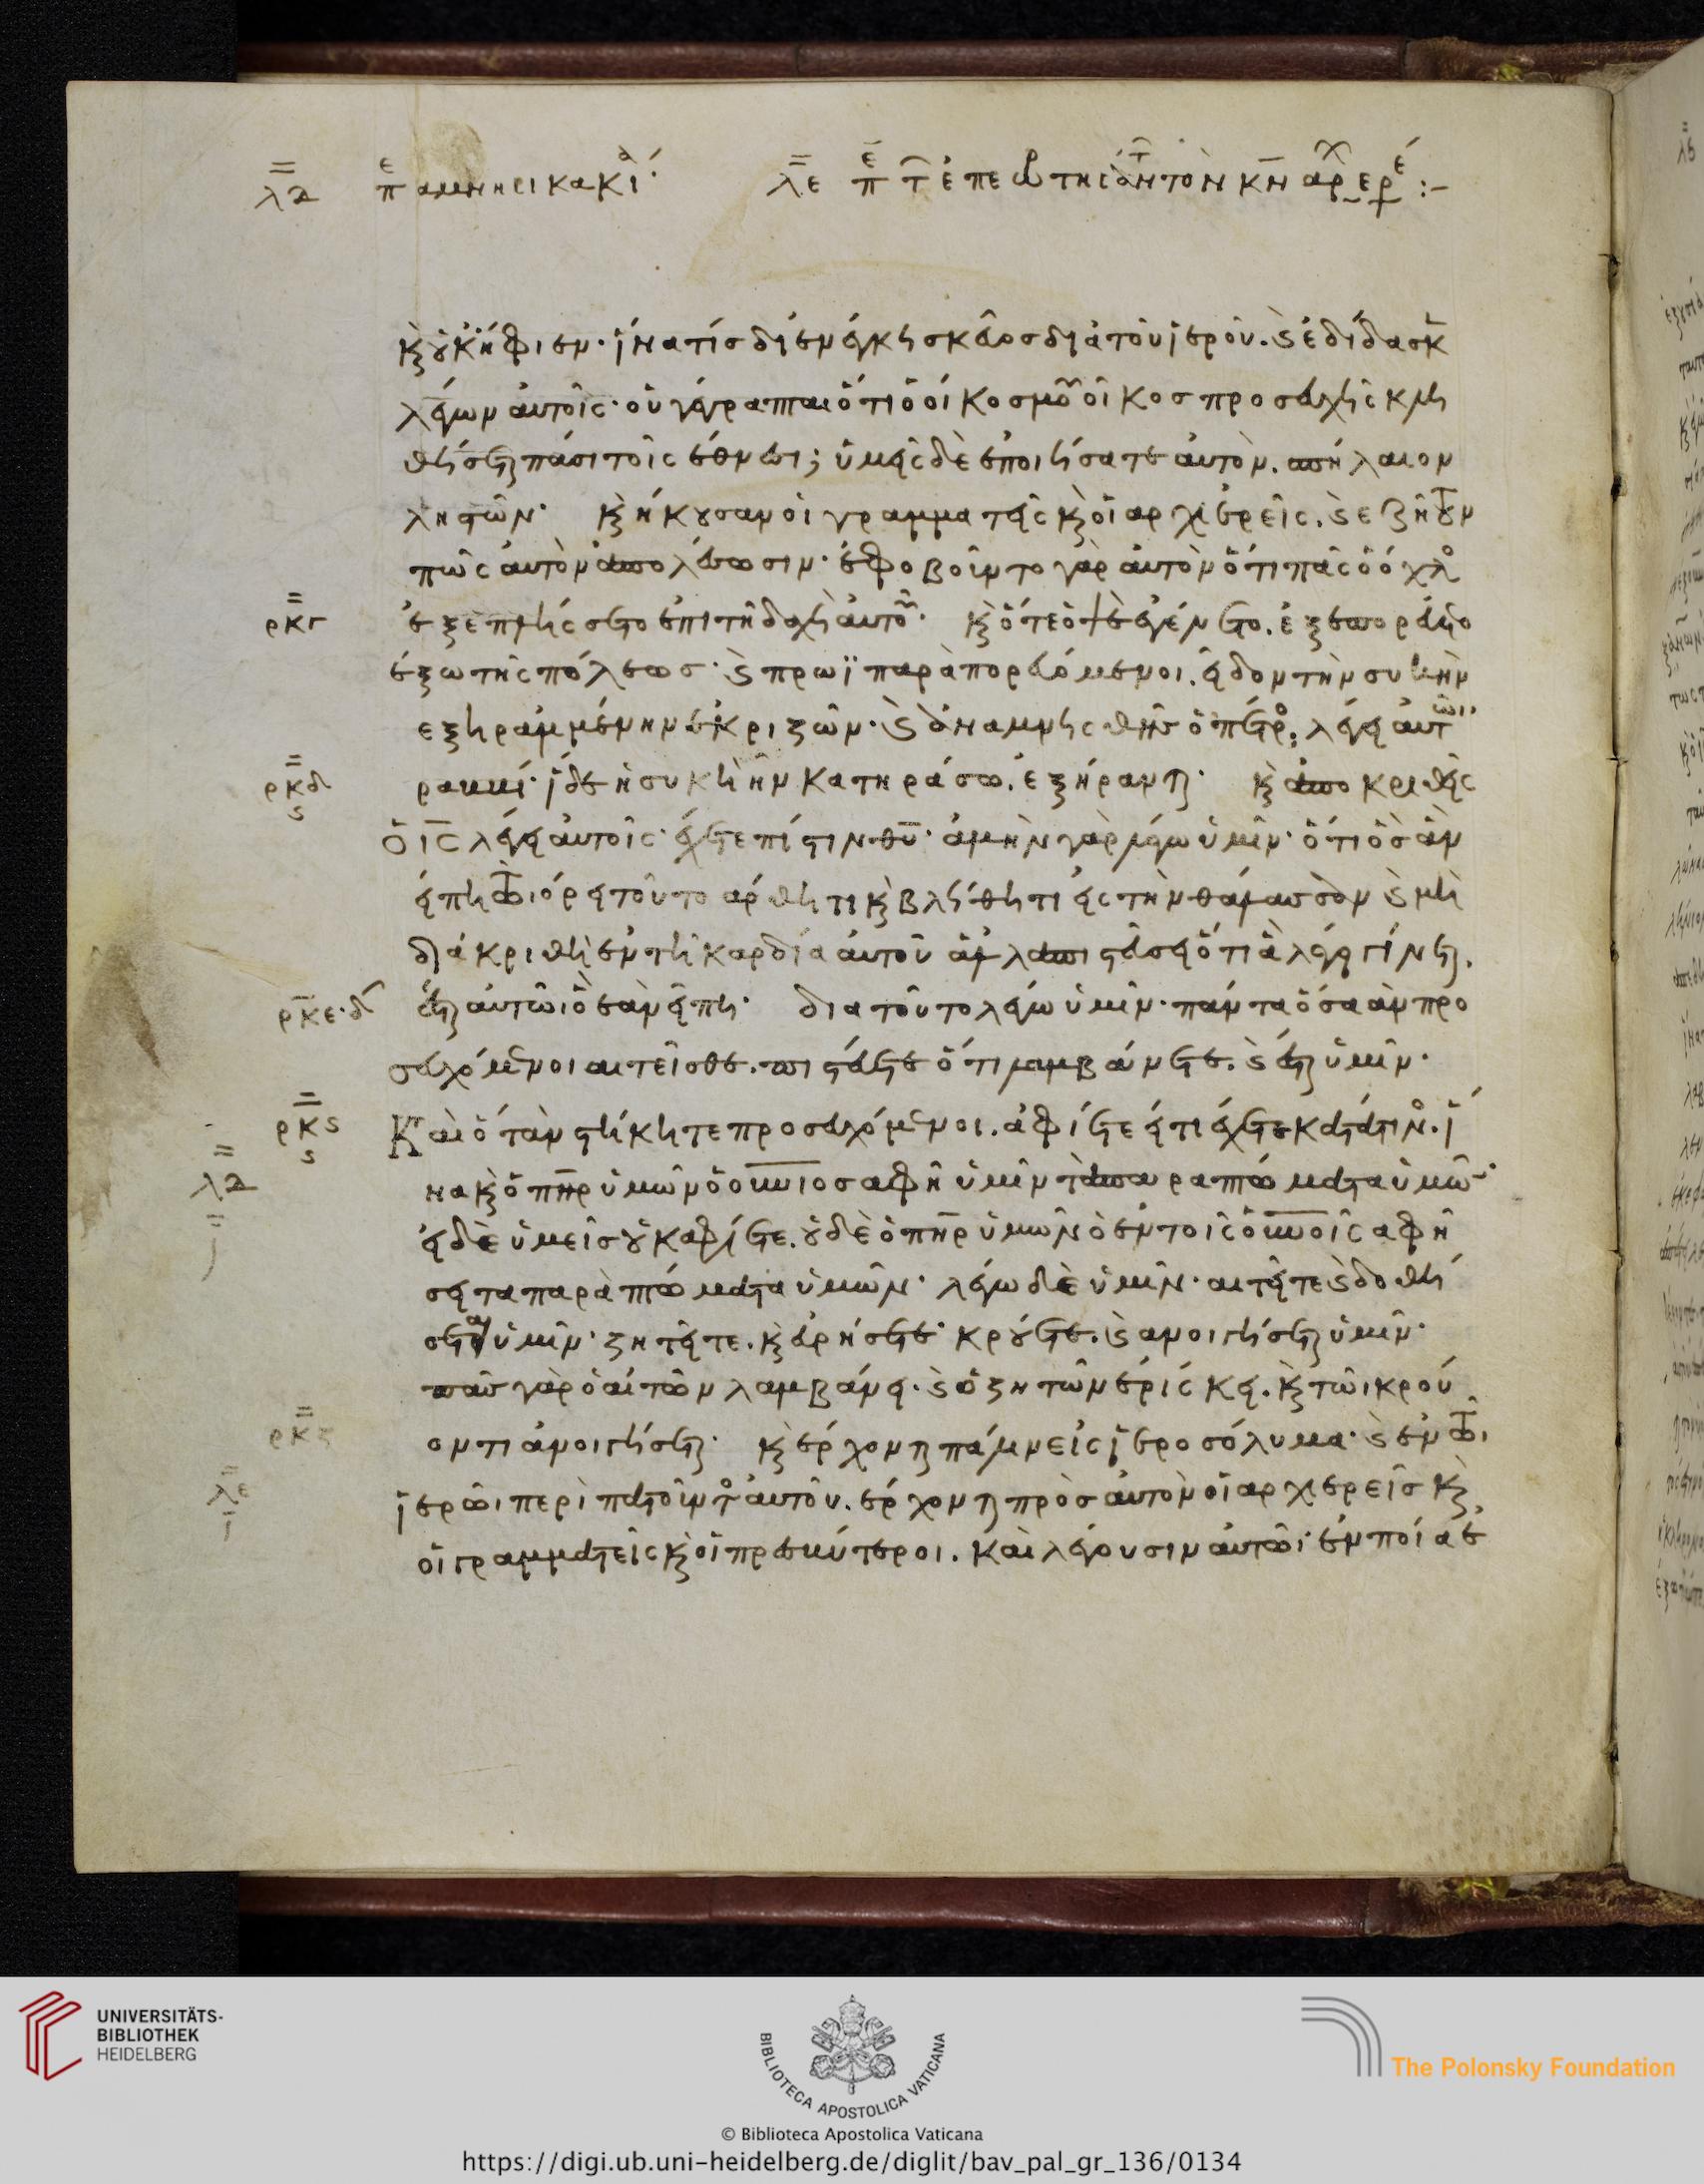 λδ πε αμνησικακί λε πε τ ἐπερωτησάντων τὸν κν αρχιερέ :-
κ οὐκ ἤφιεν· ἵνα τίς διενέγκη σκεῦος διὰ τοῦ ἱεροῦ. κ ἐδίδασκ
λέγων αὐτοῖς· οὐ γέγραπται ὅτι ὁ οἶκος μοῦ οἶκος προσευχῆς κλη
θήσεται πάσι τοῖς ἔθνεσι; ὑμεῖς δὲ ἐποιήσατε αὐτὸν. σπήλαιον
ληστῶν· κ ἤκουσαν οἱ γραμματεῖς κ οἱ ἀρχιερεῖς. κ εζήτουν
πῶς αὐτὸν ἀπολέσωσιν· ἐφοβοῦντο γὰρ αὐτὸν ὅτι πᾶς ὁ ὄχλο
ρκγ ἐξεπλήσσετο ἐπὶ τῆ διδαχῆ αὐτοῦ· κ ὅτε ὀψὲ ἐγένετο. ἐξεπορεύετο
ἔξω τῆς πόλεως· κ πρωῒ παραπορευόμενοι. εἶδον τὴν συκῆν
ἐξηραμμένην ἐκ ριζῶν· κ ἀναμνησθεὶς ὁ πέτρο, λέγει αὐτῶι·
ρκδ ς ραββί· ἴδε ἡ συκῆ ἣν κατηράσω. ἐξήρανται· κ ἀποκριθεὶς
ὁ ις λέγει αὐτοῖς· ἔχετε πίστιν θυ· ἀμὴν γὰρ λέγω ὑμῖν· ὅτι ὃς ἂν
εἴπη τῶι ὄρει τοῦτο ἄρθητι κ βλήθητι εἰς τὴν θάλασσαν κ μὴ
διακριθῆ ἐν τῆ καρδία αὐτοῦ ἀλλα πιστεύσει ὅτι ἃ λέγει γίνεται.
ρκε·δ ἔσται αὐτῶι ὃ ἐὰν εἴπη· διατοῦτο λέγω ὑμῖν· πάντα ὅσα ἂν προ
σευχόμενοι αιτεῖσθε. πιστεύετε ὅτι λαμβάνετε. κ ἔσται ὑμῖν·
ρκς ς Καὶ ὅταν στήκητε προσευχόμενοι. ἀφίετε εἴ τι ἔχετε κατά τινο. ἵ
λδ να κ ὁ πηρ ὑμῶν ὁ ουνιος αφῆ ὑμῖν τὰ παραπτώματα ὑμῶ·
εἰ δὲ ὑμεῖς οὐκ αφίετε. οὐδὲ ὁ πηρ ὑμῶν ὁ ἐν τοῖς ουνοῖς αφή
σει τα παραπτώματα ὑμῶν· λέγω δὲ ὑμῖν· αιτεῖτε κ δοθή
σεται ὑμῖν· ζητεῖτε. κ ευρήσετε· κρούετε. κ ανοιγήσεται ὑμῖν·
πᾶς γὰρ ὁ αἰτῶν λαμβάνει. κ ὁ ζητῶν ευρίσκει. κ τῶι κρού
ρκζ οντι ἀνοιγήσεται· κ έρχονται πάλιν εἰς ἱεροσόλυμα· κ ἐν τῶι
λε ἱερῶι περιπατοῦντο αὐτοῦ. έρχονται πρὸς αὐτὸν οἱ αρχιερεῖς κ
οἱ γραμματεῖς κ οἱ πρεσβύτεροι. καὶ λέγουσιν αὐτῶι· ἐν ποία ε
UNIVERSITÄTS-
BIBLIOTHEK
HEIDELBERG
BIBLIOTECA APOSTOLICA VATICANA
The Polonsky Foundation
© Biblioteca Apostolica Vaticana
https://digi.ub.uni-heidelberg.de/diglit/bav_pal_gr_136/0134